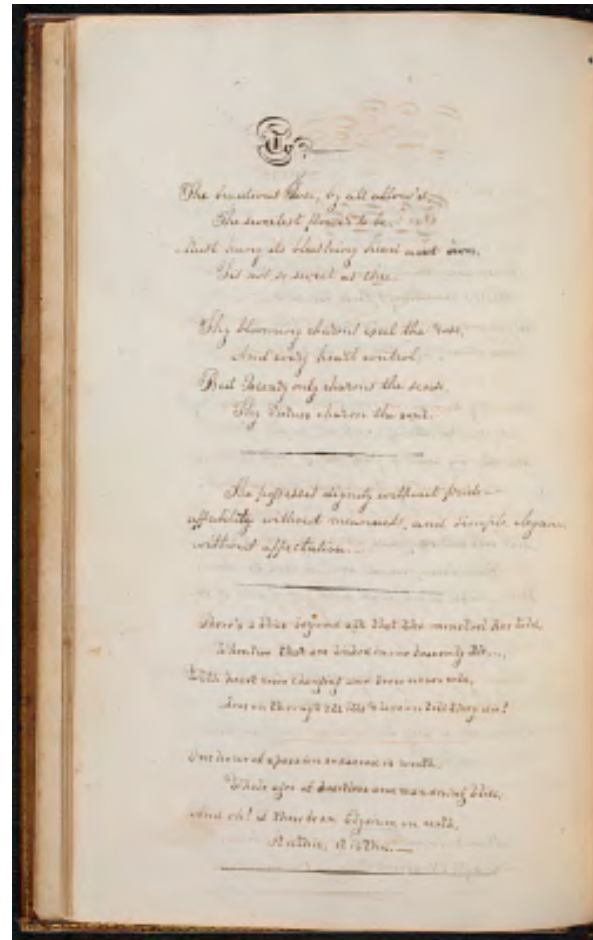 To
The beauteous Rose, by all allow'd,
The sweetest flower to be,
Must hang its blushing head and own,
'Tis not so sweet as thee.
Thy blooming charms excel the rose,
And every heart control,
But Beauty only charms the sense,
Thy Virtues charm the soul.
He possesses dignity without pride—
affability without meanness, and simple elegance
without affectation.
There's a bliss beyond all that the minstrel has told,
When two that are linked in one heavenly tie,
With heart never changing and brow never cold,
Love on through all ills, and love on till they die!
One hour of a passion so sacred is worth
Whole ages of heartless and wandering bliss;
And oh! if there be an Elysium on earth,
It is this, it is this.—